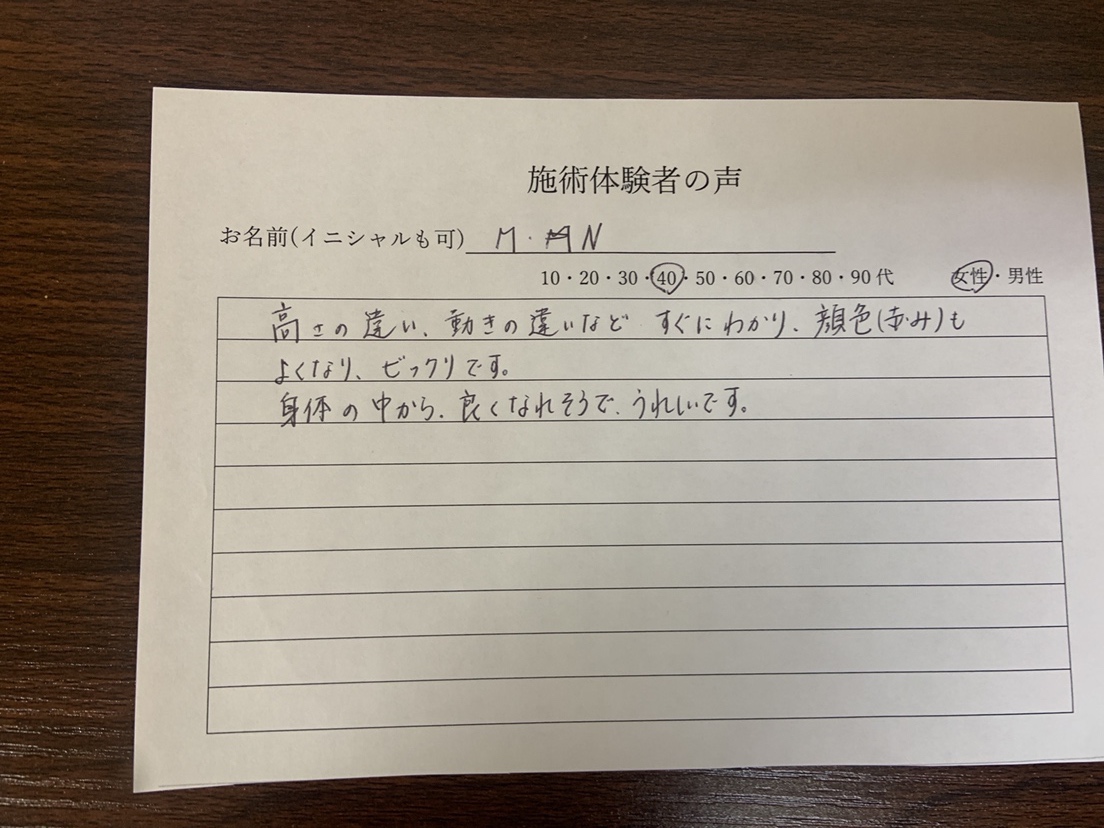 施術体験者の声
お名前(イニシャルも可) M・N
10・20・30・40・50・60・70・80・90代 女性・男性
高さの違い、動きの違いなど すぐにわかり、顔色(赤み)も
よくなり、ビックリです。
身体の中から、良くなれそうで、うれしいです。